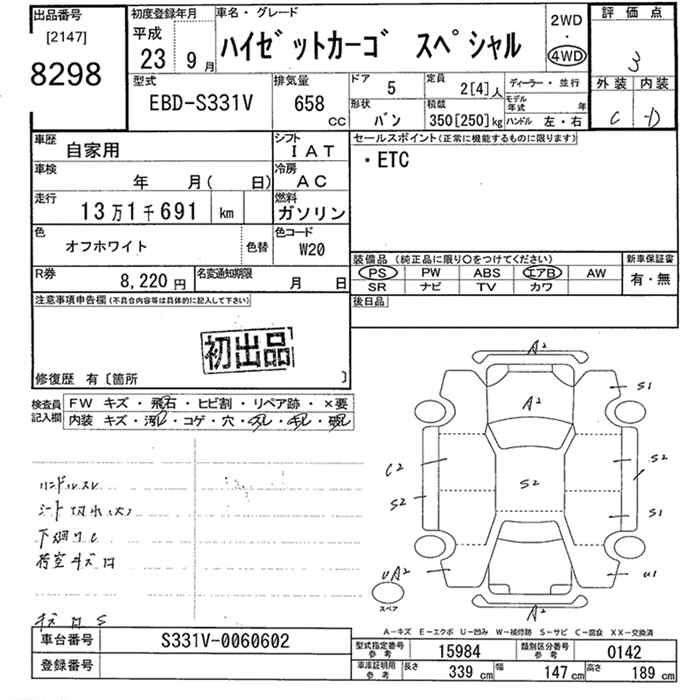 出品番号
[2147]
8298
初度登録年月
平成
23年 9月
車名・グレード
ハイゼットカーゴ スペシャル
2WD
・
4WD
評価点
3
外装 内装
C D
型式
EBD-S331V
排気量
658
CC
ドア
5
定員
2[4]人
ディーラー・並行
形状
バン
積載
350[250]kg
モデル年式 年
ハンドル 左・右
車歴
自家用
シフト
IAT
セールスポイント(正常に機能するものに限ります)
・ETC
車検
年 月( 日)
冷房
AC
走行
13万1千691 km
燃料
ガソリン
色
オフホワイト
色替
色コード
W20
装備品(純正品に限り○をつけてください)
PS PW ABS エアB AW
SR ナビ TV カワ
新車保証書
有・無
R券
8,220円
名変通知期限
月 日
後日品
注意事項申告欄(不具合内容等は具体的に記入して下さい)
初出品
修復歴 有〔箇所 〕
検査員記入欄
FW キズ・飛石・ヒビ割・リペア跡・×要
内装 キズ・汚レ・コゲ・穴・スレ・キレ・破レ
ハンドルスレ
シート切れ(大)
荷室キズ凹
A2
A2
S1
C2
S2
S2
S2
S1
UA2
U1
A2
スペア
キズ凹S
A-キズ E-エクボ U-凹み W-補修跡 S-サビ C-腐食 XX-交換済
車台番号
S331V-0060602
登録番号
型式指定番号 参考
15984
類別区分番号 参考
0142
車庫証明用 参考
長さ 339 cm
幅 147 cm
高さ 189 cm